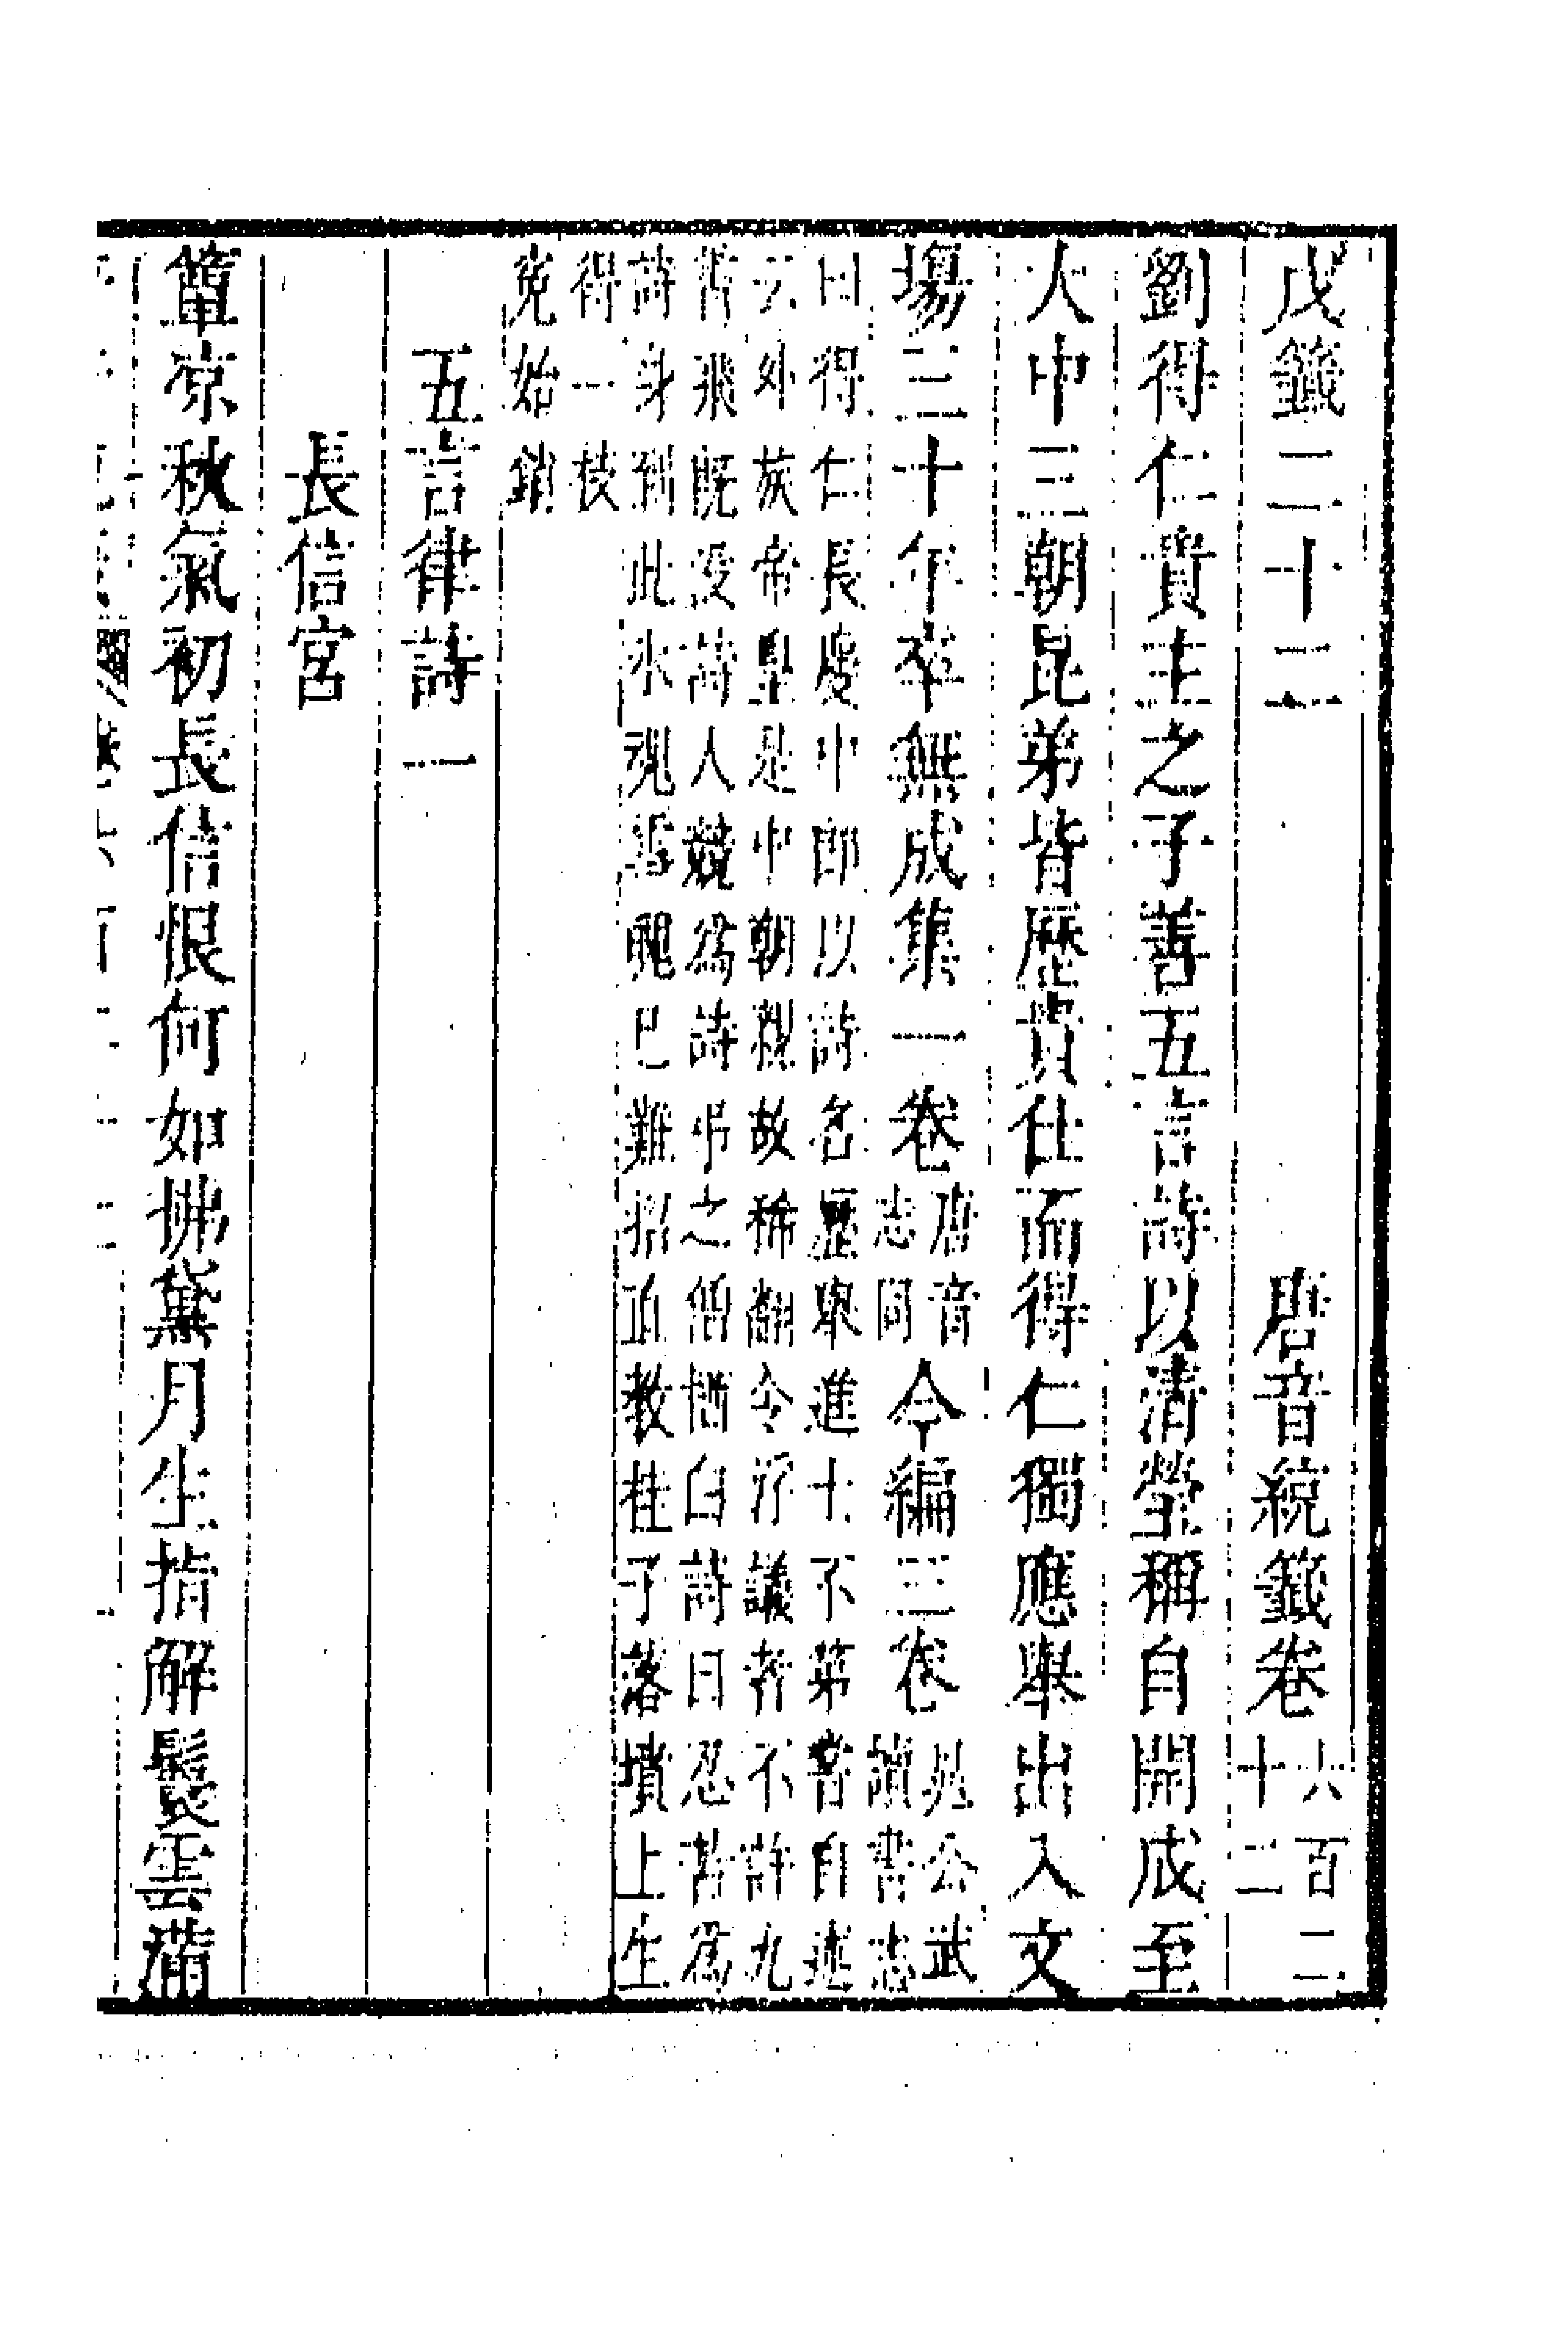 戊籤二十二　唐音統籤卷六百二
十二
劉得仁貴主之子善五言詩以清瑩稱自開成至
大中三朝昆弟皆歷貴仕而得仁獨應舉出入文
場三十年卒無成集一卷唐音志同今編三卷晁公武讀書志
曰得仁長慶中即以詩名歷舉進士不第嘗自述
云外族帝皇是中朝親故稀翻令浮議者不許九
霄飛既没詩人競爲詩弔之僧栖白詩曰忍苦爲
詩身到此氷魂雪魄已難招直教桂子落墳上生
得一枝
冤始銷
五言律詩一
長信宮
簟凉秋氣初長信恨何如拂黛月生指解鬟雲滿